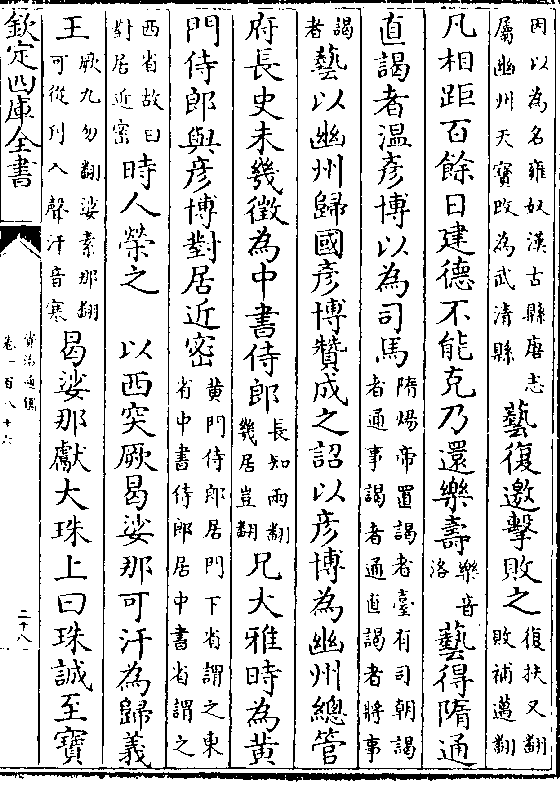 因以為名雍奴漢古縣唐志
屬幽州天寶改為武清縣
藝復邀擊敗之
復扶又翻
敗補邁翻
凡相距百餘日建德不能克乃還樂壽
樂音
洛
藝得隋通
直謁者溫彥博以為司馬
隋煬帝置謁者臺有司朝謁
者通事謁者通直謁者將事
謁
者
藝以幽州歸國彥博贊成之詔以彥博為幽州總管
府長史未幾徵為中書侍郎
長知兩翻
幾居豈翻
兄大雅時為黄
門侍郎與彥博對居近密
黄門侍郎居門下省謂之東
省中書侍郎居中書省謂之
西省故曰
對居近密
時人榮之
以西突厥曷娑那可汗為歸義
王
厥九勿翻娑素那翻
可從刋入聲汗音寒
曷娑那獻大珠上曰珠誠至寶
欽定四庫全書
資治通鑑
卷一百八十六
二十八